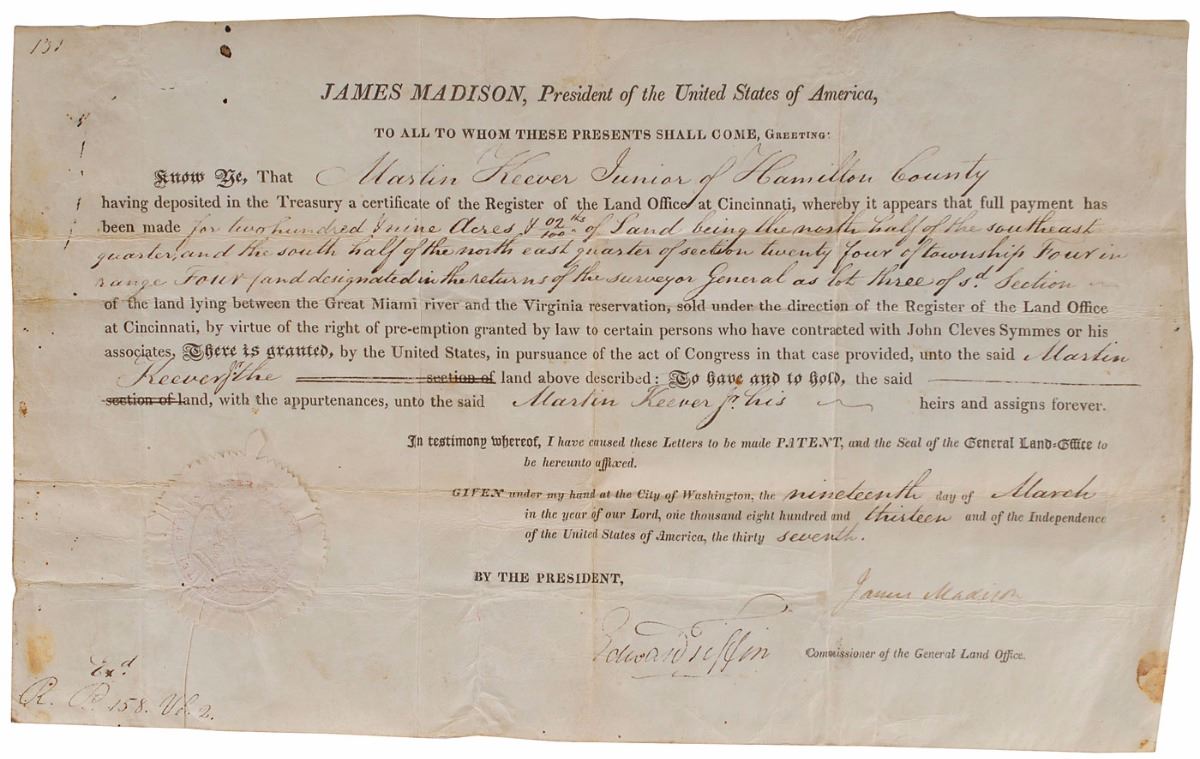 131
JAMES MADISON, President of the United States of America,
TO ALL TO WHOM THESE PRESENTS SHALL COME, GREETING:
Know Ye, That Martin Keever Junior of Hamilton County
having deposited in the Treasury a certificate of the Register of the Land Office at Cincinnati, whereby it appears that full payment has
been made for two hundred & nine Acres, & 02/100ths of Land being the north half of the southeast
quarter, and the south half of the north east quarter of section twenty four of township Four in
range Four (and designated in the returns of the surveyor General as lot three of sd. Section
of the land lying between the Great Miami river and the Virginia reservation, sold under the direction of the Register of the Land Office
at Cincinnati, by virtue of the right of pre-emption granted by law to certain persons who have contracted with John Cleves Symmes or his
associates, There is granted, by the United States, in pursuance of the act of Congress in that case provided, unto the said Martin
Keever jr. the section of land above described: To have and to hold, the said
section of land, with the appurtenances, unto the said Martin Keever jr. his heirs and assigns forever.
In testimony whereof, I have caused these Letters to be made PATENT, and the Seal of the General Land-Office to
be hereunto affixed.
GIVEN under my hand at the City of Washington, the nineteenth day of March
in the year of our Lord, one thousand eight hundred and thirteen and of the Independence
of the United States of America, the thirty seventh.
BY THE PRESIDENT,
James Madison
Edward Tiffin Commissioner of the General Land Office.
Exd
R. P. 158. Vol. 2.